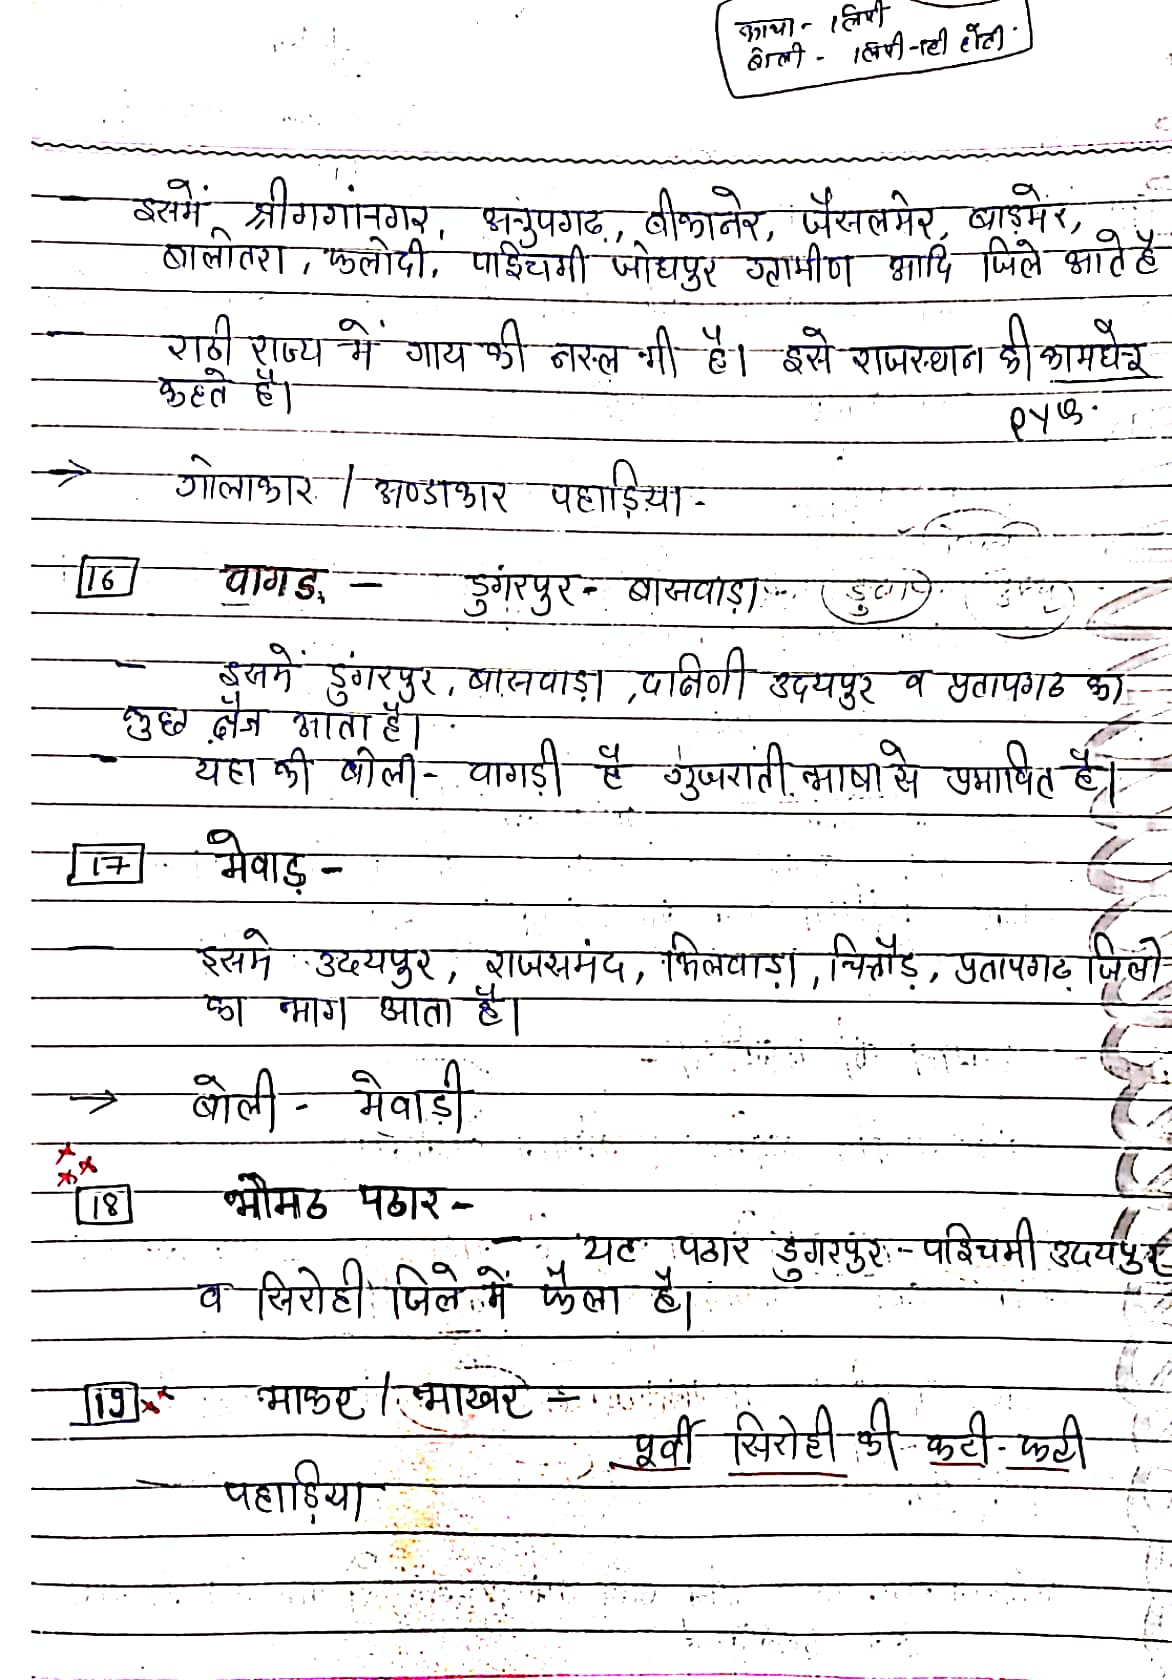 भाषा - लिपी
बोली - लिपी नही होती.
- इसमें श्रीगगांनगर, अनुपगढ, बीकानेर, जैसलमेर, बाड़मेर,
बालोतरा, फलोदी, पश्चिमी जोधपुर ग्रामीण आदि जिले आते है
- राठी राज्य में गाय की नस्ल भी है। इसे राजस्थान की कामधेनु
कहते है।
→ गोलाकार / अण्डाकार पहाड़िया -
16 वागड़ - डुगंरपुर - बासवाड़ा
- इसमें डुंगरपुर, बासवाड़ा, दक्षिणी उदयपुर व प्रतापगढ का
कुछ क्षैत्र आता है।
- यहा की बोली - वागड़ी है गुजराती भाषा से प्रभावित है।
17 मेवाड़ -
- इसमे उदयपुर, राजसमंद, भिलवाड़ा, चित्तौड़, प्रतापगढ़ जिलो
का भाग आता है।
→ बोली - मेवाड़ी
18 भौमठ पठार -
- यह पठार डुगरपुर - पश्चिमी उदयपुर
व सिरोही जिले में फैला है।
19 भाकर / भाखर -
पूर्वी सिरोही की कटी - फटी
पहाड़िया